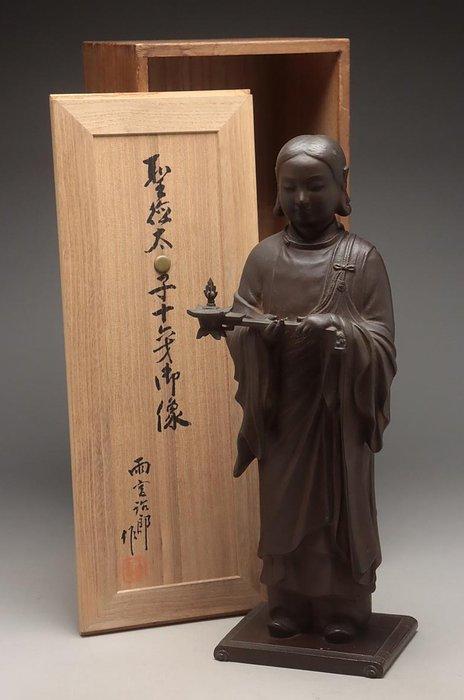 聖徳太子十六才御像
雨宮治郎作